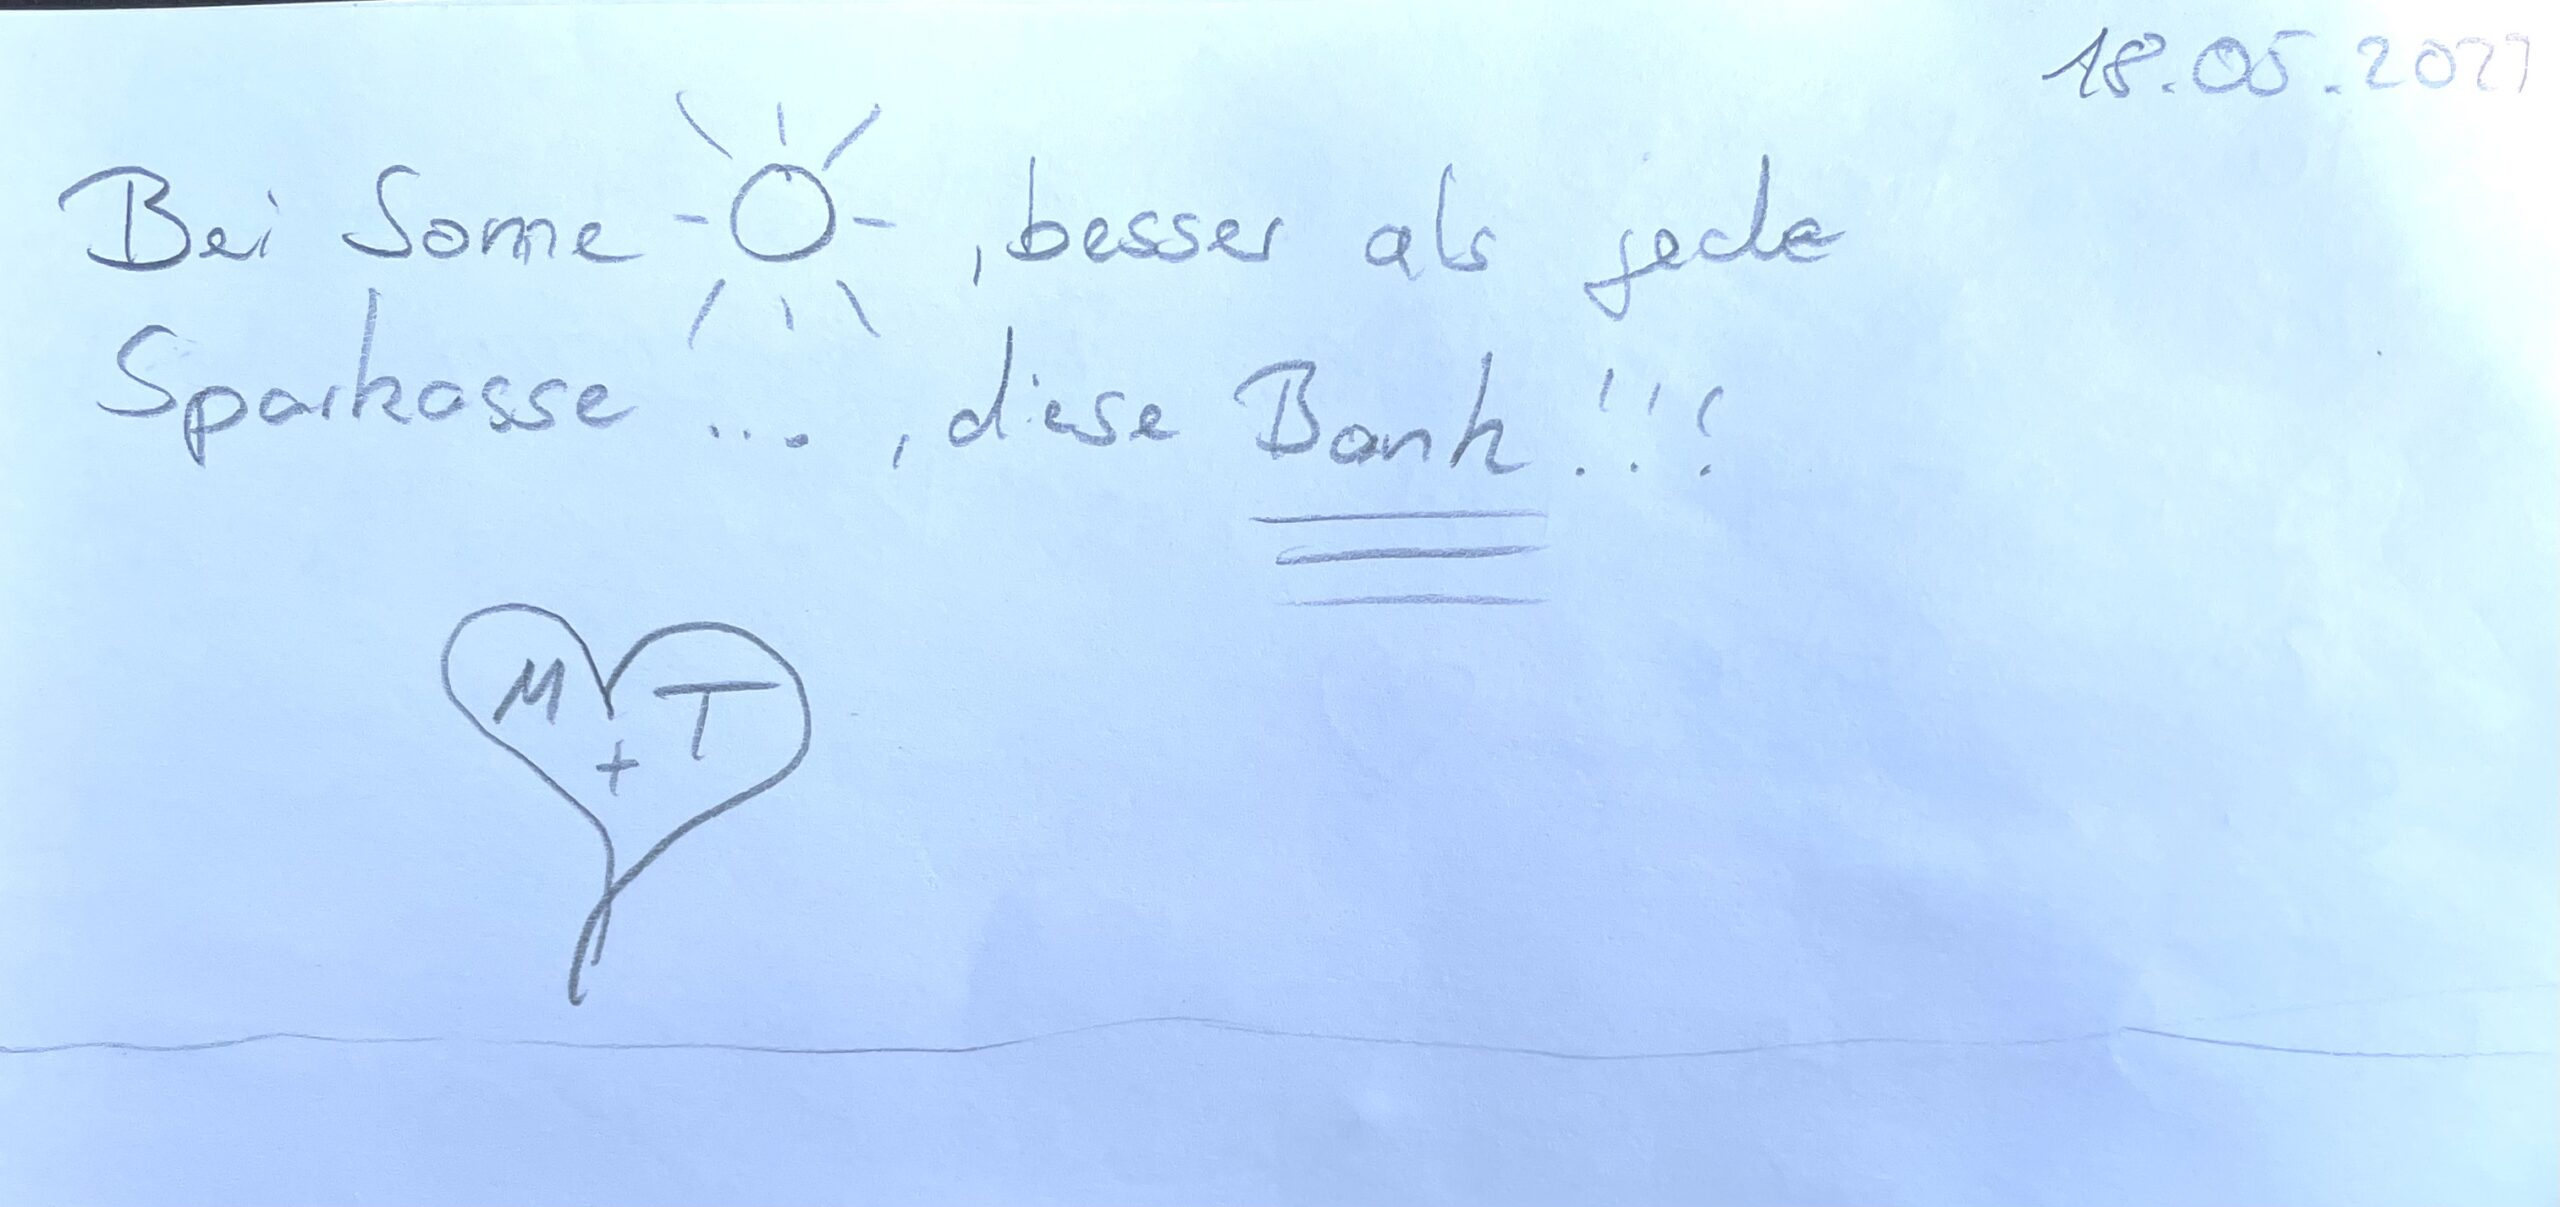 18.05.2021
Bei Sonne , besser als jede
Sparkasse ... , diese Bank !!!
M + T